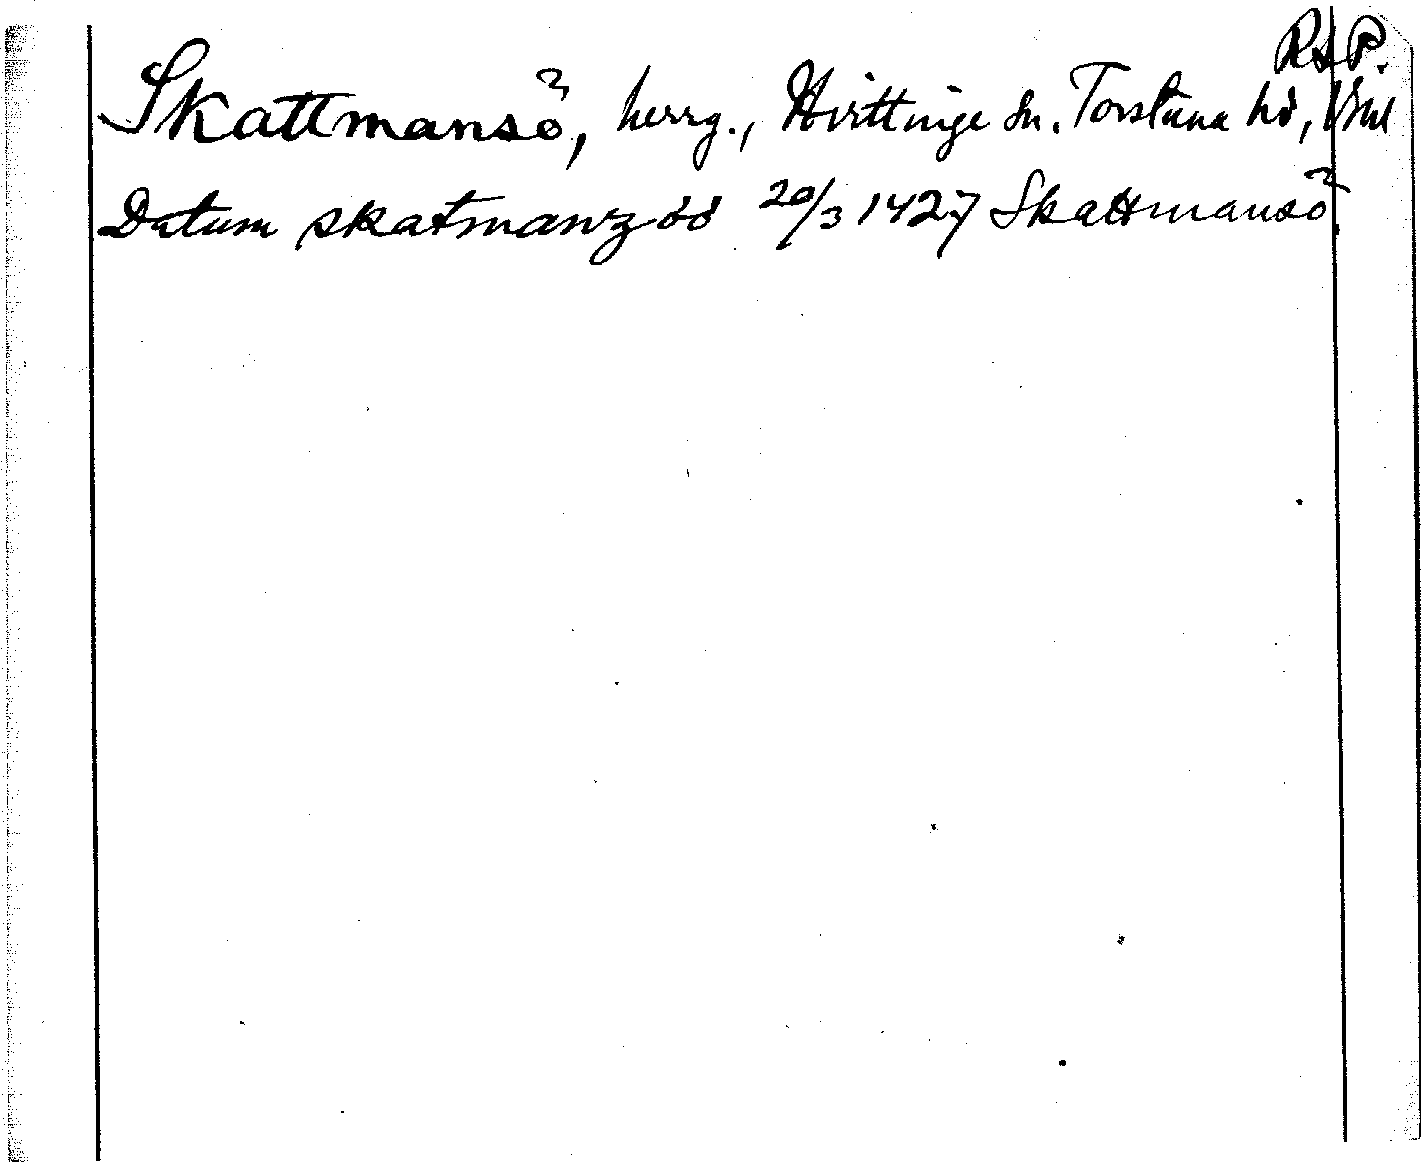 RAP.
Skattmansö, herrg., Hvittinge sn. Torstuna hd, Vml
Datum skatmanzöö 20/3 1427 Skattmansö